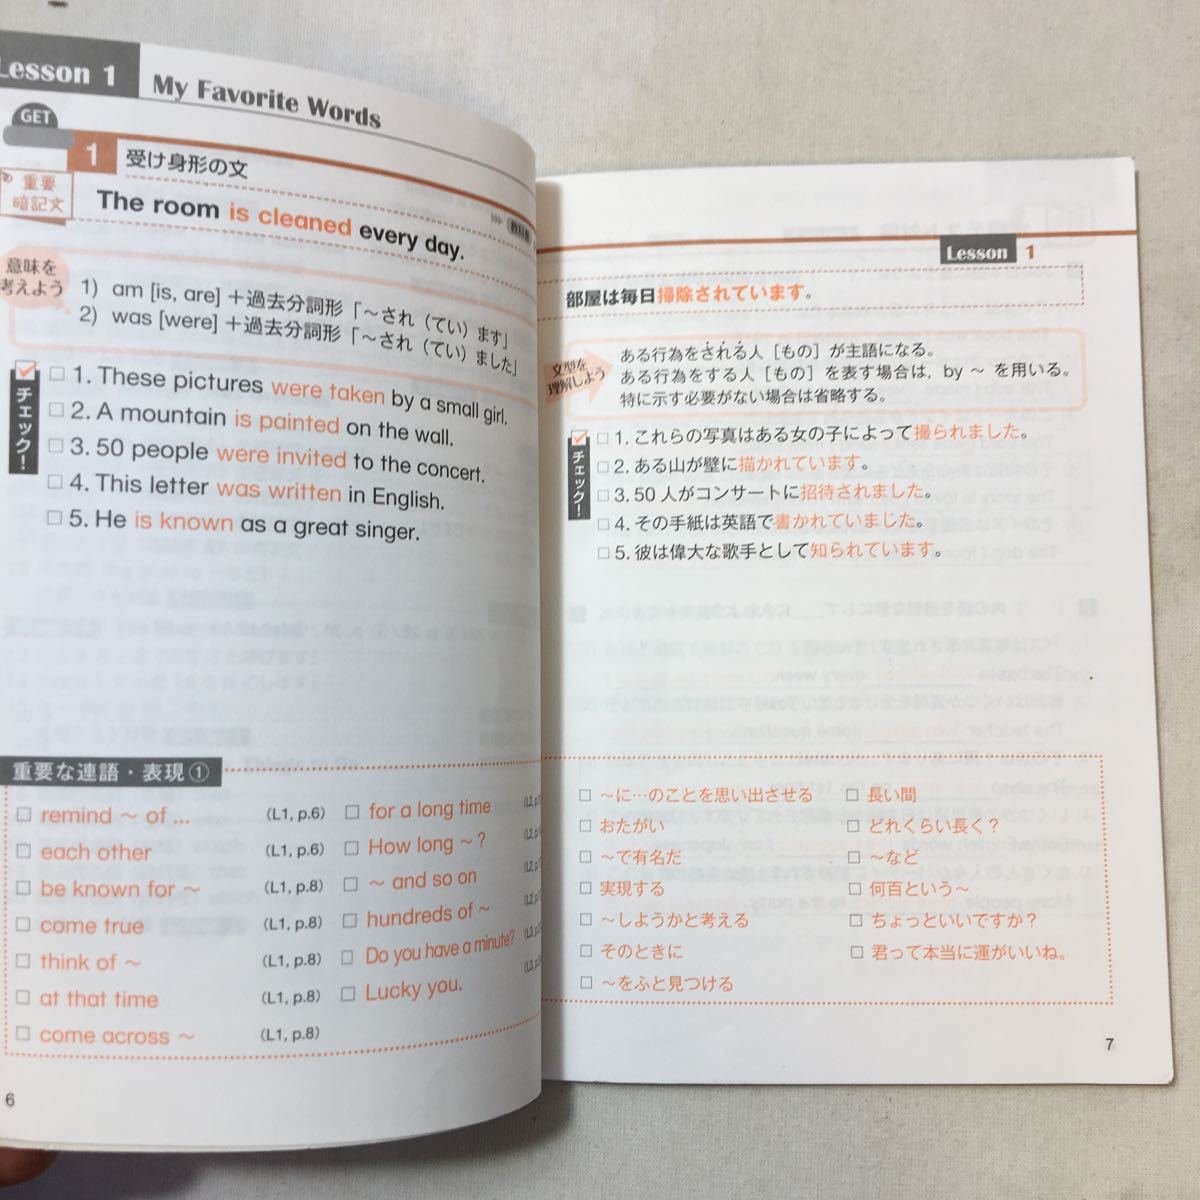 Lesson 1
My Favorite Words
GET
1 受け身形の文
重要
暗記文
The room is cleaned every day.
教科書
意味を
考えよう
1) am [is, are] +過去分詞形「～され（てい）ます」
2) was [were] +過去分詞形「～され（てい）ました」
チェック!
□ 1. These pictures were taken by a small girl.
□ 2. A mountain is painted on the wall.
□ 3. 50 people were invited to the concert.
□ 4. This letter was written in English.
□ 5. He is known as a great singer.
重要な連語・表現①
□ remind ～ of ... (L1, p.6)
□ each other (L1, p.6)
□ be known for ～ (L1, p.8)
□ come true (L1, p.8)
□ think of ～ (L1, p.8)
□ at that time (L1, p.8)
□ come across ～ (L1, p.8)
□ for a long time
□ How long ～ ?
□ ～ and so on
□ hundreds of ～
□ Do you have a minute?
□ Lucky you.
6
Lesson 1
部屋は毎日掃除されています。
文型を
理解しよう
ある行為をされる人［もの］が主語になる。
ある行為をする人［もの］を表す場合は，by ～ を用いる。
特に示す必要がない場合は省略する。
チェック!
□ 1. これらの写真はある女の子によって撮られました。
□ 2. ある山が壁に描かれています。
□ 3. 50 人がコンサートに招待されました。
□ 4. その手紙は英語で書かれていました。
□ 5. 彼は偉大な歌手として知られています。
□ ～に…のことを思い出させる
□ おたがい
□ ～で有名だ
□ 実現する
□ ～しようかと考える
□ そのときに
□ ～をふと見つける
□ 長い間
□ どれくらい長く？
□ ～など
□ 何百という～
□ ちょっといいですか？
□ 君って本当に運がいいね。
7